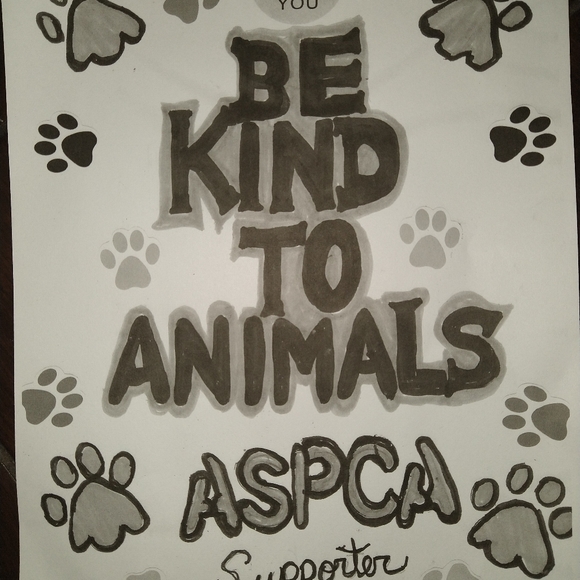 YOU
BE
KIND
TO
ANIMALS
ASPCA
Supporter